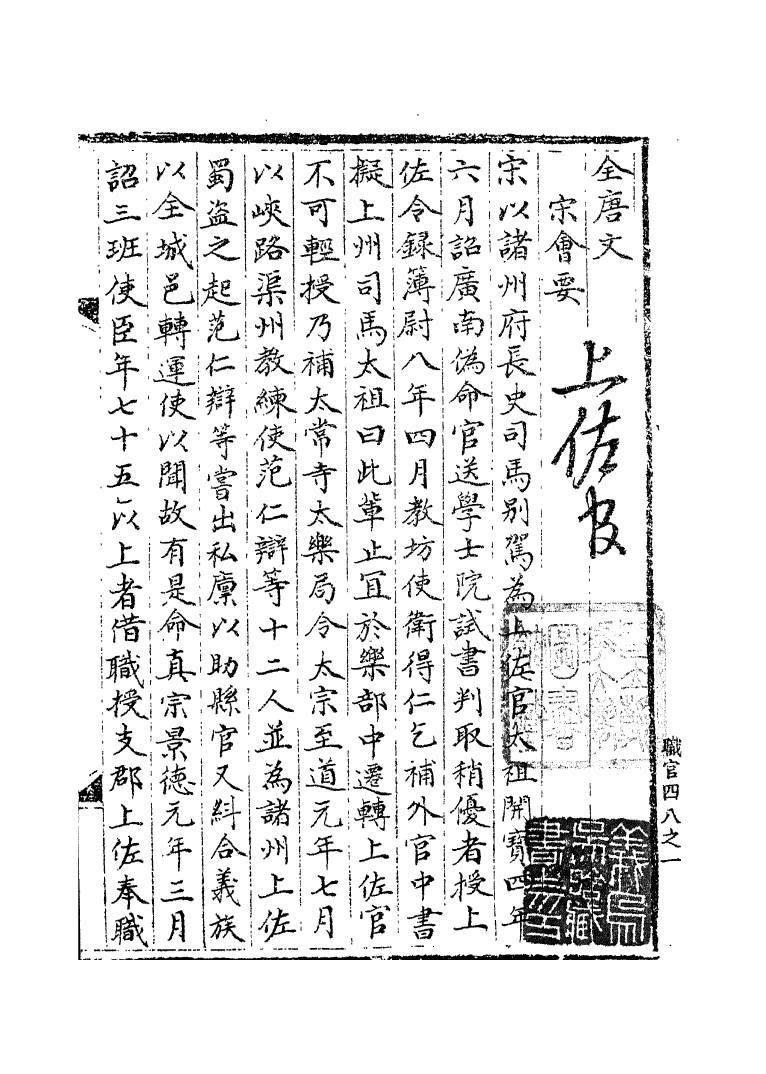 全唐文
宋會要
上佐官
宋以諸州府長史司馬別駕為上佐官太祖開寶四年
六月詔廣南偽命官送學士院試書判取稍優者授上
佐令録簿尉八年四月教坊使衛得仁乞補外官中書
擬上州司馬太祖曰此輩止冝於樂部中遷轉上佐官
不可輕授乃補太常寺太樂局令太宗至道元年七月
以峽路渠州教練使范仁辯等十二人並為諸州上佐
蜀盜之起范仁辯等嘗出私廩以助縣官又糾合義族
以全城邑轉運使以聞故有是命真宗景德元年三月
詔三班使臣年七十五以上者借職授支郡上佐奉職
職官四八之一